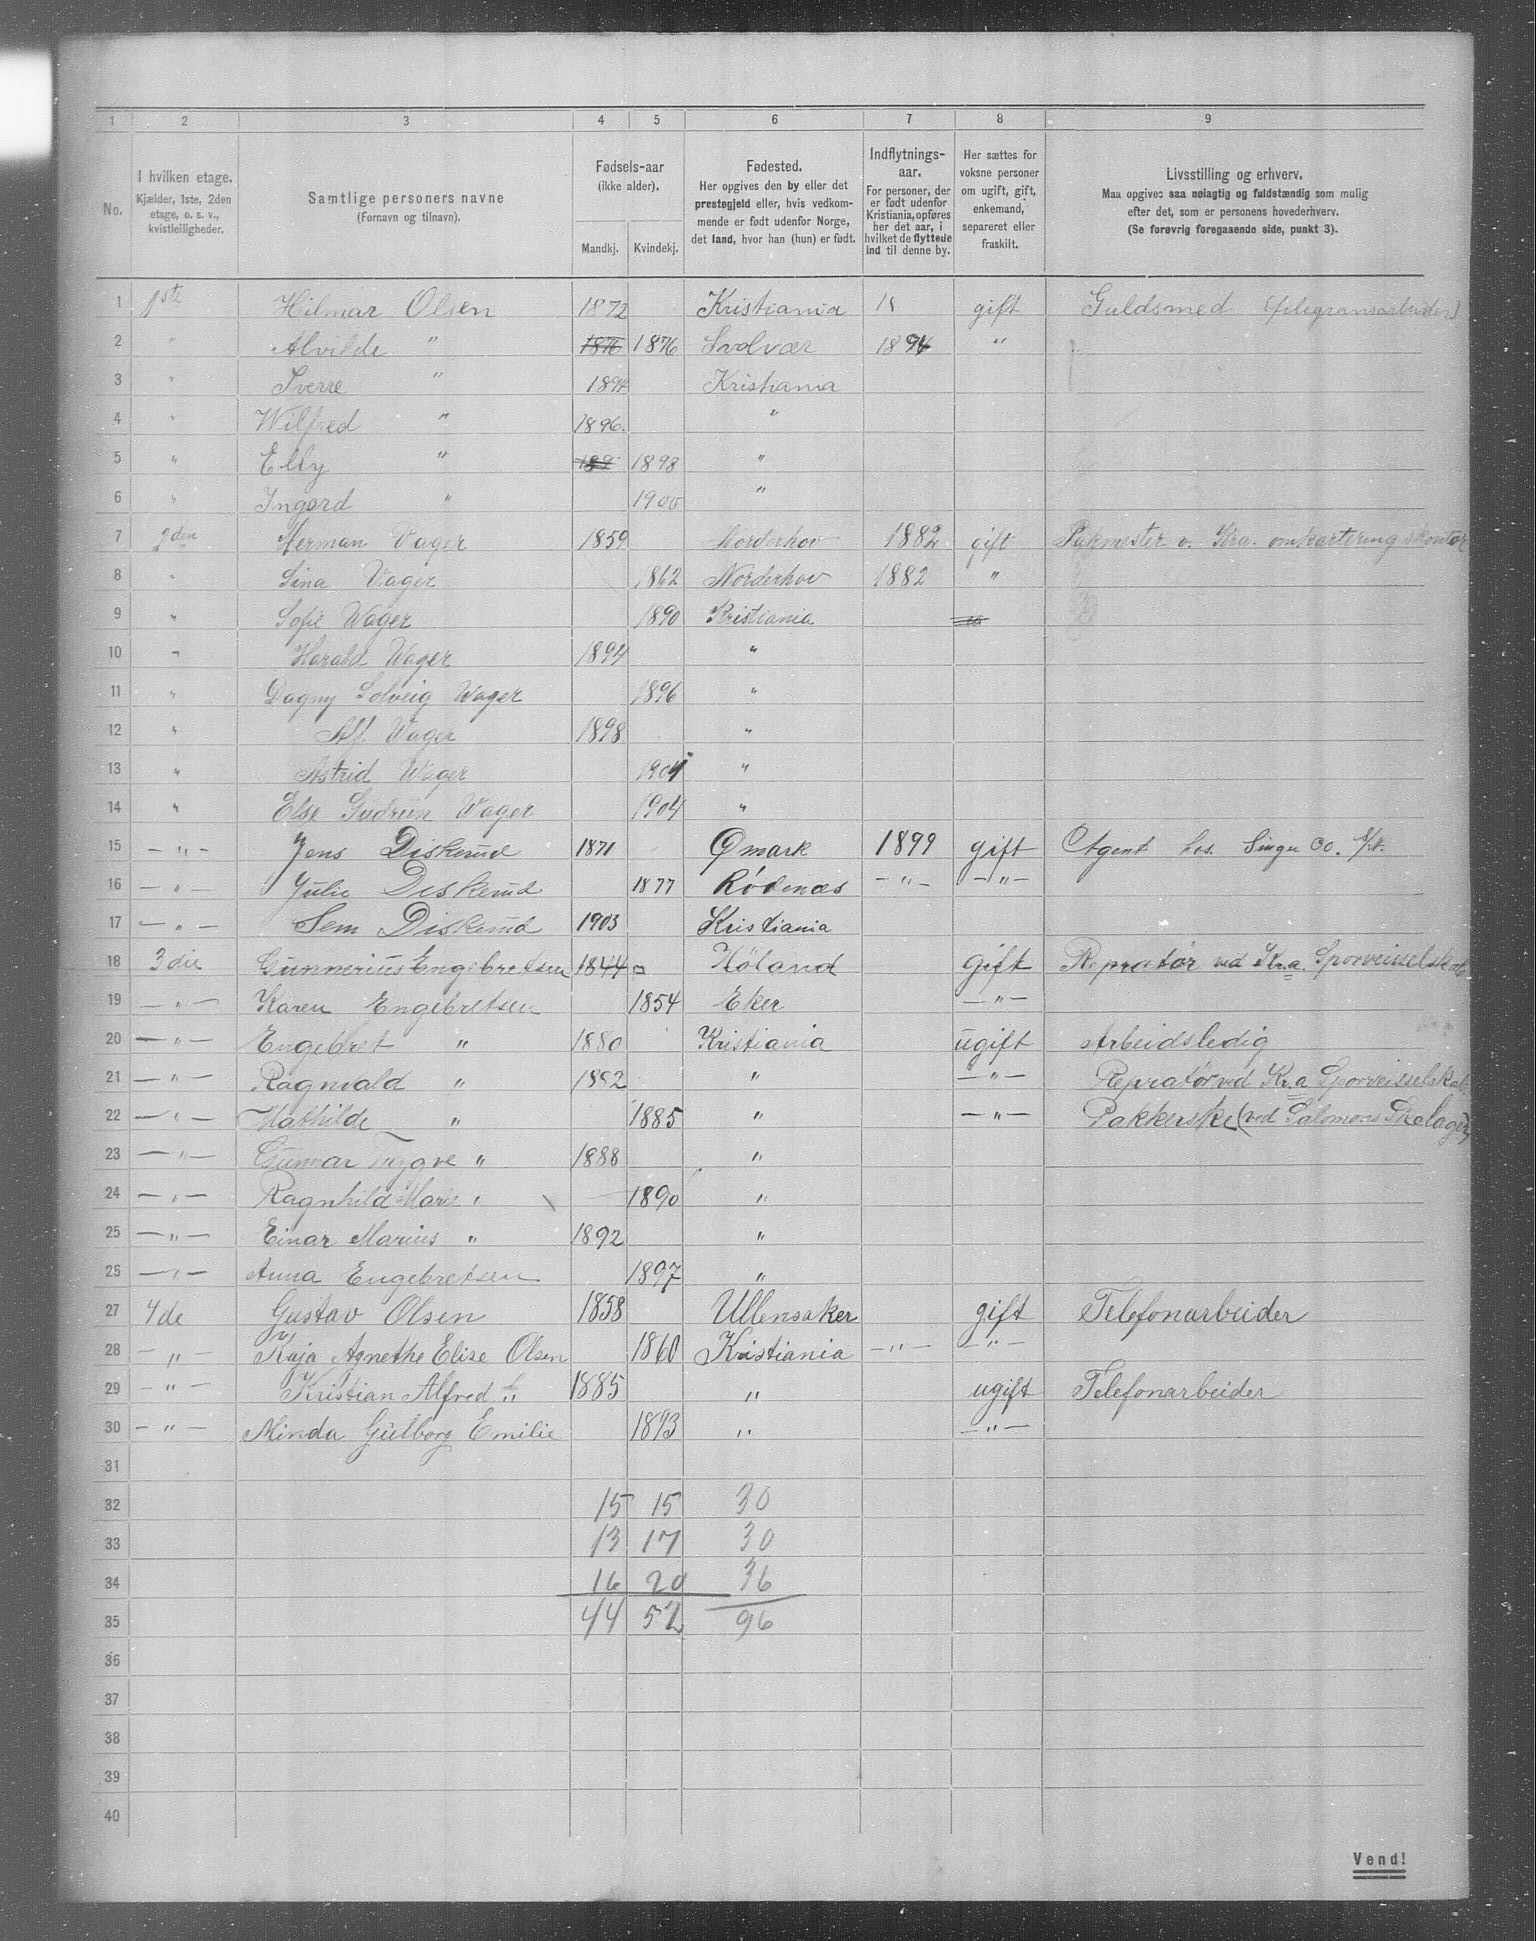 1 2 3 4 5 6 7 8 9
No.
I hvilken etage.
Kjælder, 1ste, 2den
etage, o. s. v.,
kvistleiligheder.
Samtlige personers navne
(Fornavn og tilnavn).
Fødsels-aar
(ikke alder).
Mandkj. Kvindekj.
Fødested.
Her opgives den by eller det
prestegjeld eller, hvis vedkom-
mende er født udenfor Norge,
det land, hvor han (hun) er født.
Indflytnings-
aar.
For personer, der
er født udenfor
Kristiania, opføres
her det aar, i
hvilket de flyttede
ind til denne by.
Her sættes for
voksne personer
om ugift, gift,
enkemand,
separeret eller
fraskilt.
Livsstilling og erhverv.
Maa opgives saa nøiagtig og fuldstændig som mulig
efter det, som er personens hovederhverv.
(Se forøvrig foregaaende side, punkt 3).
1 1ste Hilmar Olsen 1872 Kristiania 18 gift Guldsmed (filegransarbeider)
2 " Alvilde " 1876 1876 Svolvær 1894 "
3 " Sverre " 1894 Kristiania
4 " Wilfred " 1896. "
5 " Elly " 189 1898 "
6 " Ingerd " 1900 "
7 2den Herman Vager 1859 Norderhov 1882 gift Pakmester v. Kra. omkartering skontor
8 " Lina Vager 1862 Norderhov 1882 "
9 " Sofie Wager 1890 Kristiania
10 " Harald Wager 1894 "
11 " Dagny Solveig Wager 1896 "
12 " Alf. Wager 1898 "
13 " Astrid Wager 1901 "
14 " Else Gudrun Vager 1904 "
15 — " — Jens Diskerud 1871 Ømark 1899 gift Agent hos. Singer Co. S/A.
16 — " — Julie Diskerud 1877 Rødenæs — " — — " —
17 — " — Sem Diskerud 1903 Kristiania
18 3die Gunnerius Engebretsen 1844 Høland gift Repratør ved Kr.a. Sporveisselskab
19 — " — Karen Engebretsen 1854 Eker — " —
20 — " — Engebret " 1880 Kristiania ugift Arbeidsledig
21 — " — Ragnvald " 1882 " — " — Repratør ved Kr.a Sporveisselskab
22 — " — Mathilde " 1885 " — " — Pakkerske (ved Salomons Skolager)
23 — " — Gunnar Trygve " 1888 "
24 — " — Ragnhild Marie " 1890 "
25 — " — Einar Marius " 1892 "
25 — " — Anna Engebretsen 1897 "
27 4de Gustav Olsen 1858 Ullensaker gift Telefonarbeider
28 — " — Kaja Agnethe Elise Olsen 1860 Kristiania — " — — " —
29 — " — Kristian Alfred " 1885 " ugift Telefonarbeider
30 — " — Minda Gülborg Emilie 1893 " — " —
31
32 15 15 30
33 13 17 30
34 16 20 36
35 44 52 96
36
37
38
39
40
Vend!